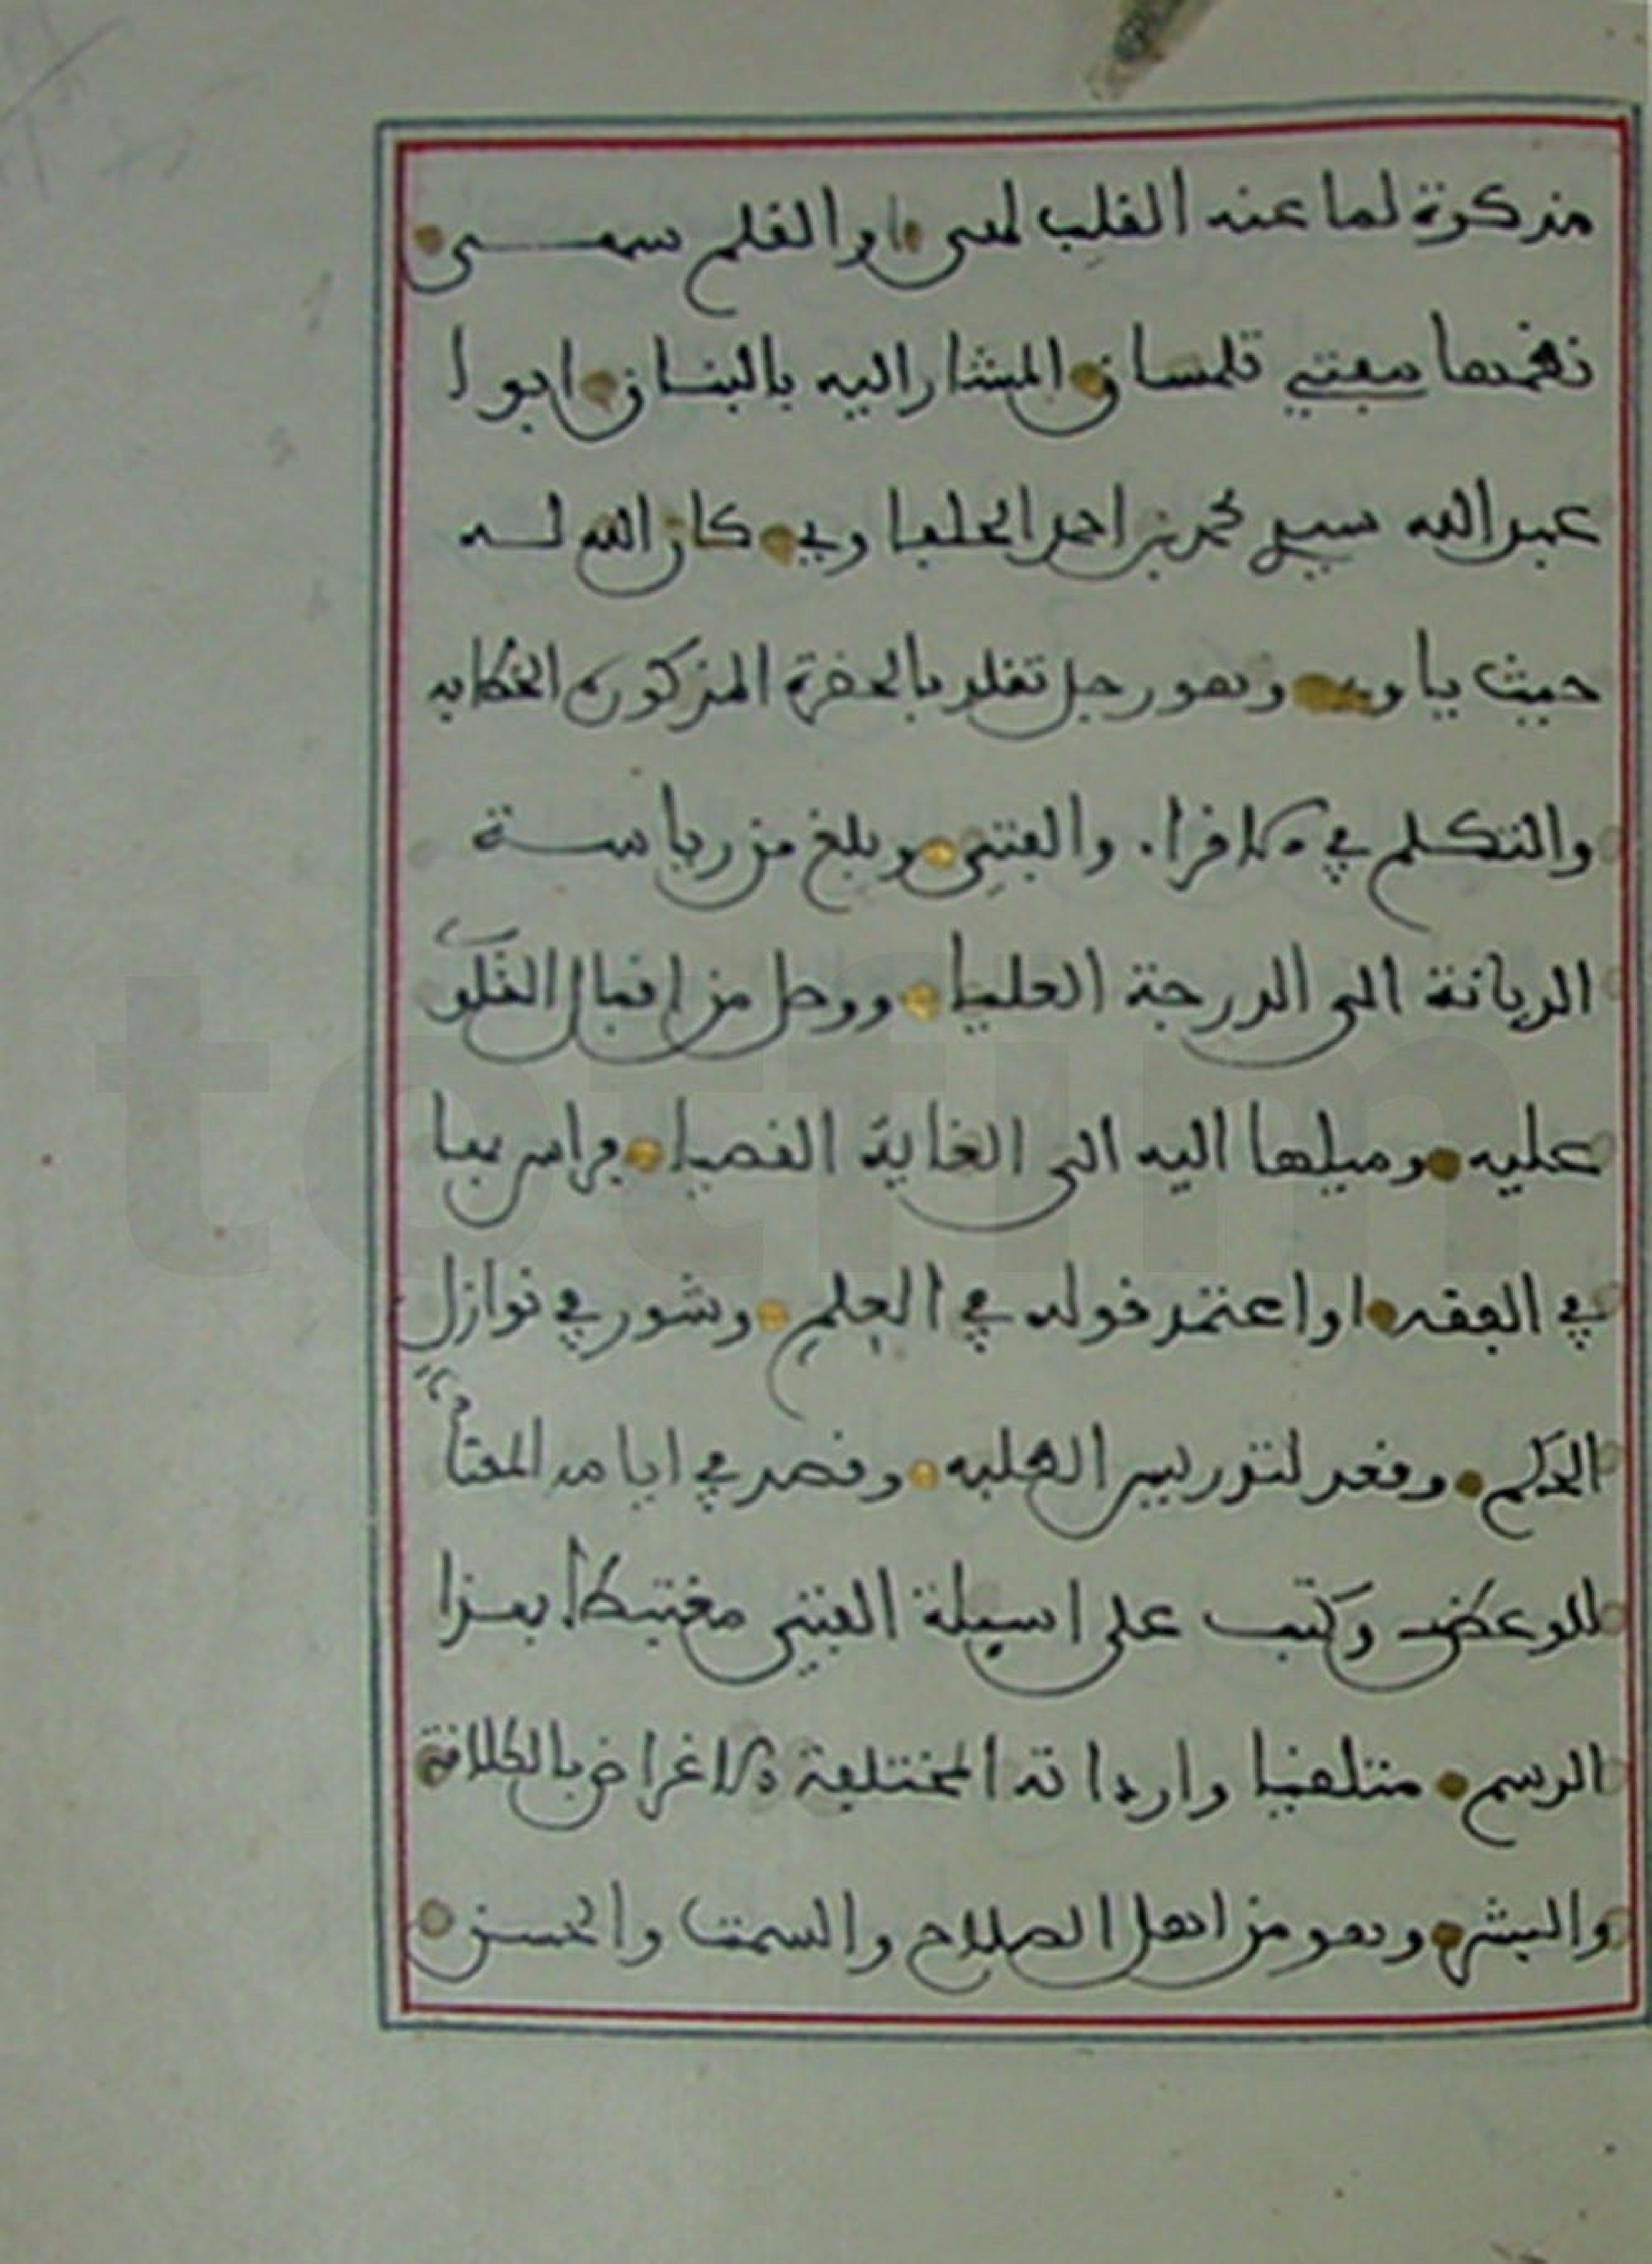 مذكرة لما عنه القلب لهى والقلم سهى
نظمها مفتي تلمسان المشار اليه بالبنان ابو ا
عبد الله سيدي محمد بن احمد الحلفاوي كان الله له
حيث ياوي وهو رجل تقلد بالحضرة المذكورة الخطابه
والتكلم في الاقراء والفتى وبلغ من رياسة
الديانة الى الدرجة العليا ووصل من اقبال القلو
عليه وميلها اليه الى الغاية القصيا فراس بها
في الفقه واعتمد قوله في العلم وشور في نوازل
الحكم وقعد لتدريس الطلبه وقصد في ايامه المعتاد
للوعظ وكتب على اسيلة الفتى مغتبطا بهذا
الرسم متلقيا وارداته المختلفة الاغراض بالطلاقة
والبشر وهو من اهل الصلاح والسمت والحسن
tccfim